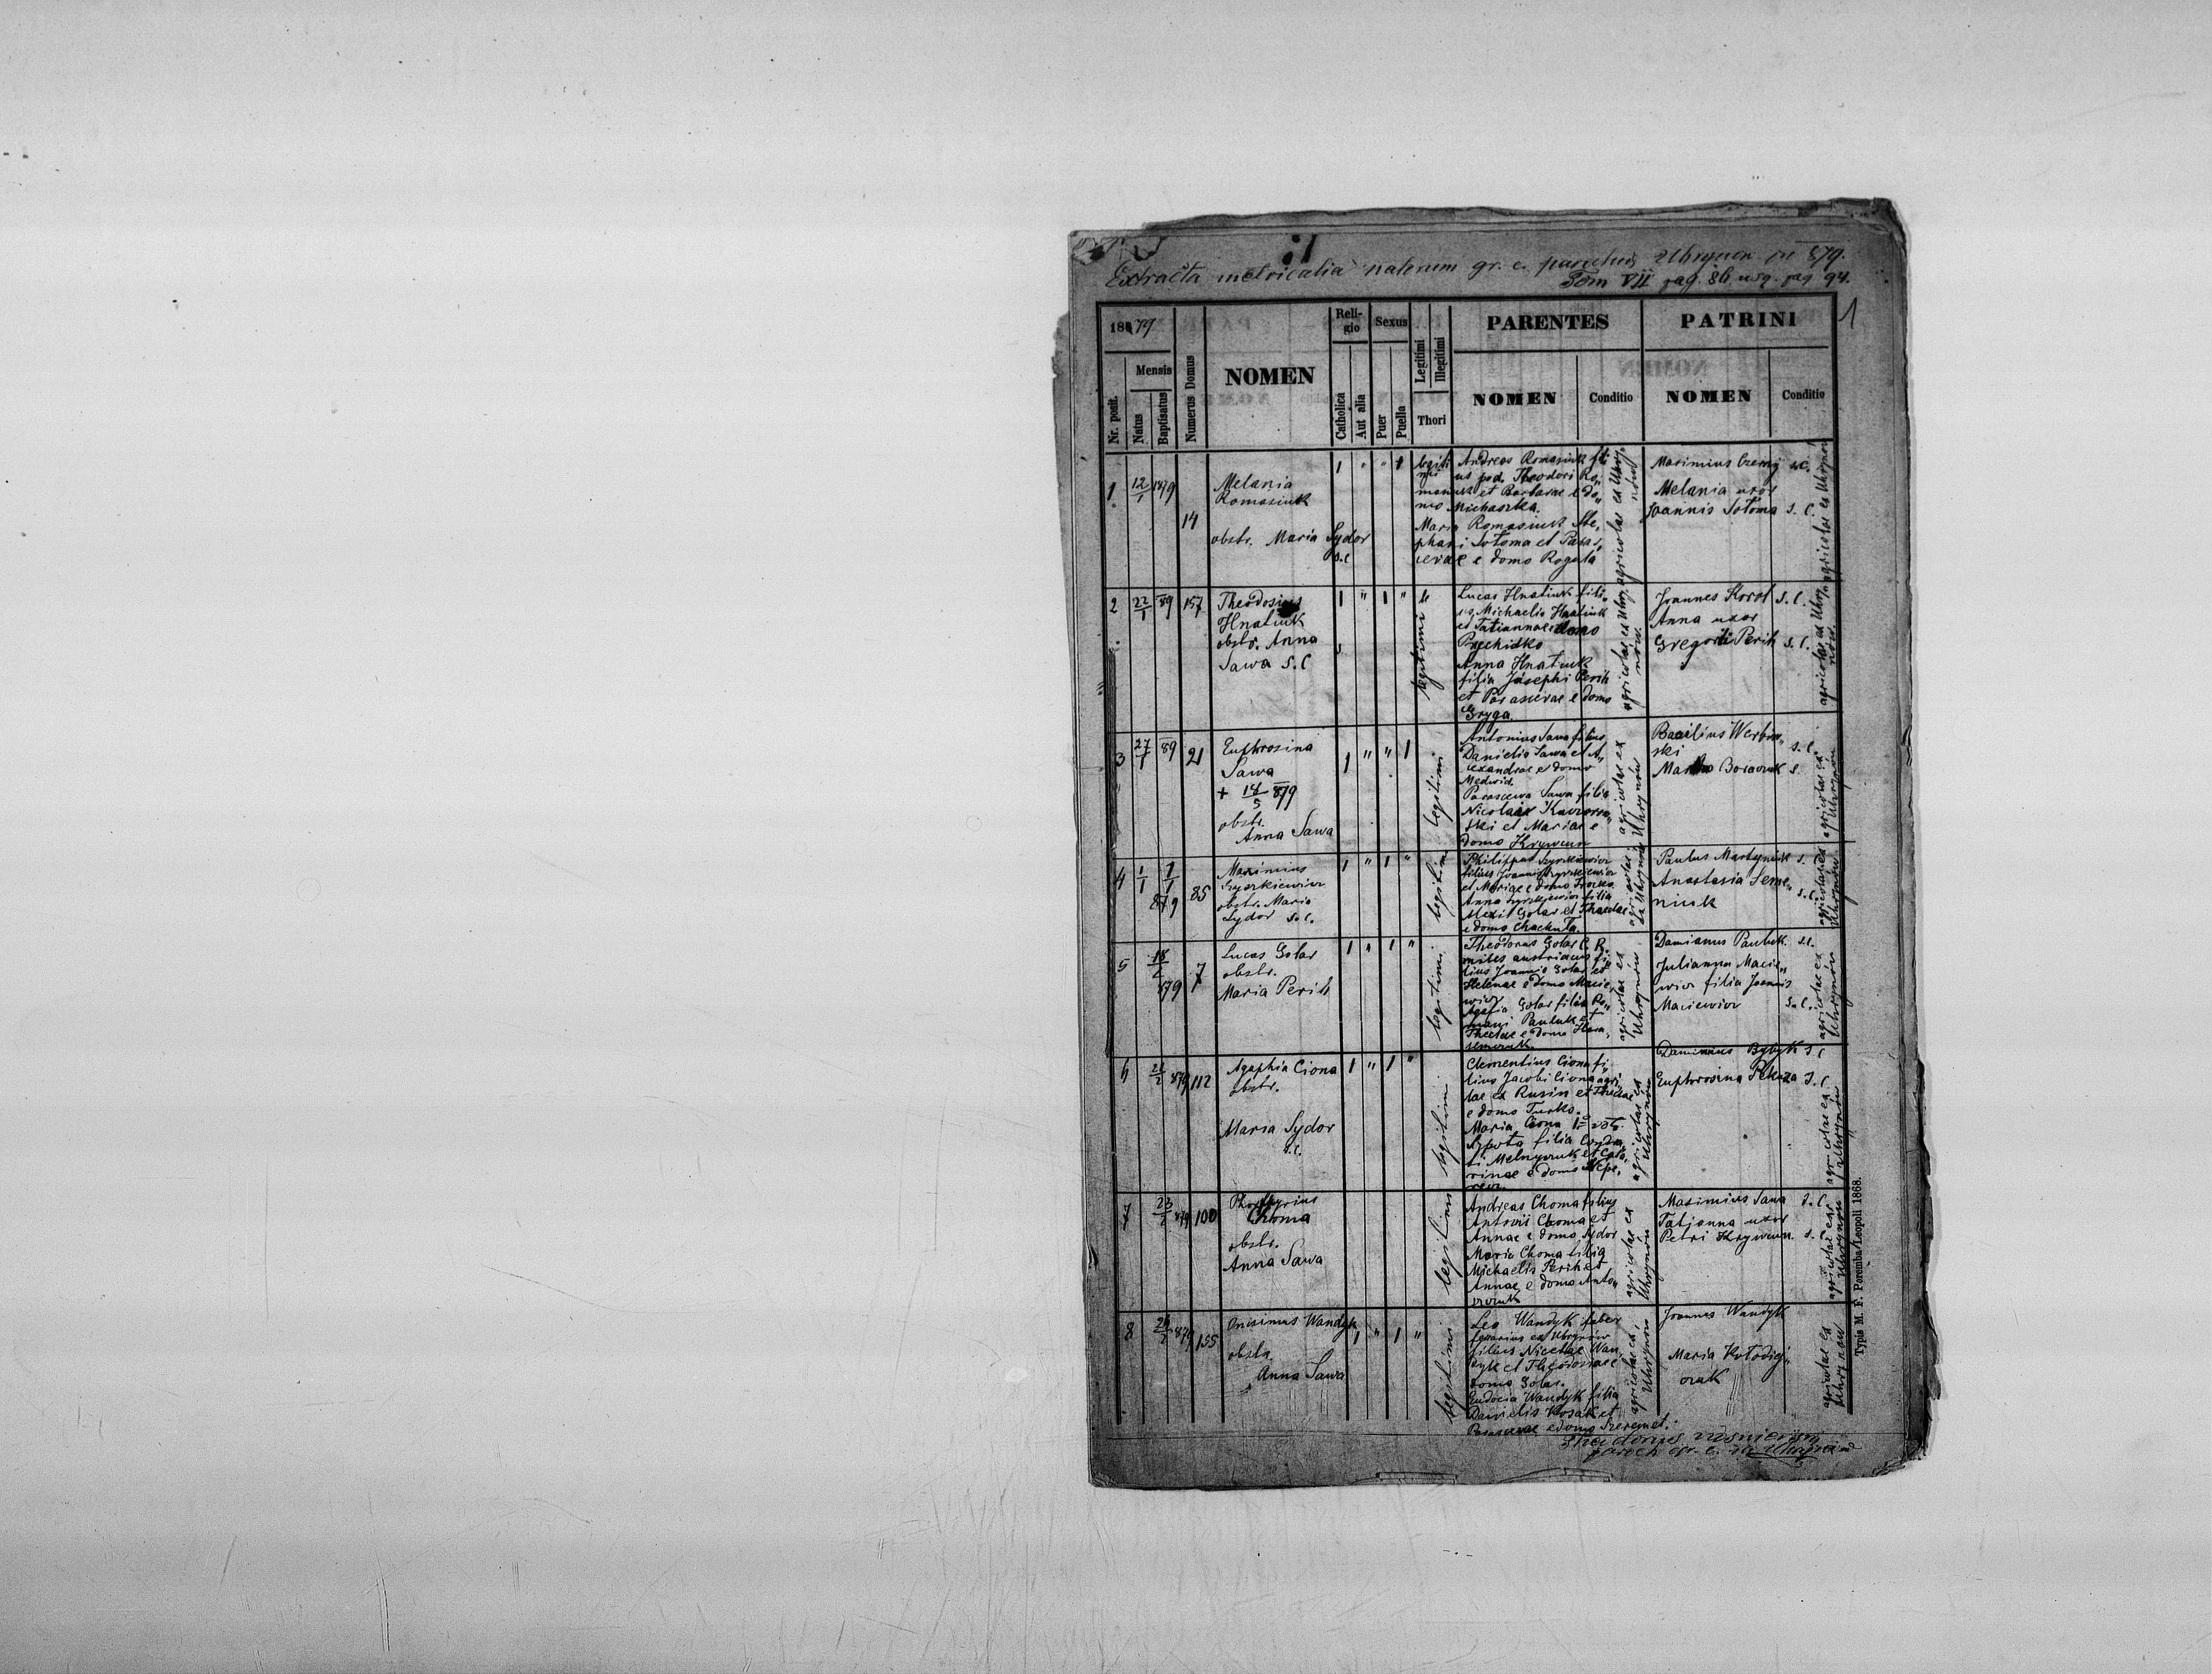 Extracta metricalia natorum gr. c. parochiae Uhrynow pr 879.
Tom VII pag. 86 usq. pag 94.
1
1879
Mensis
Nr. posit.
Natus
Baptisatus
Numerus Domus
NOMEN
Religio
Catholica
Aut alia
Sexus
Puer
Puella
Legitimi
Illegitimi
Thori
PARENTES
NOMEN
Conditio
PATRINI
NOMEN
Conditio
1 12/1 1879 14
Melania
Romasiuk
obstr. Maria Sydor
s.c
legitimi
Andreas Romasiuk fili
us Theodori Ro„
masiuk et Barbarae e do„
mo Michaszka.
Maria Romasiuk Ste„
phani Sotoma et Paras„
cevae e domo Rogata
agricolae ex Uhrynow
Maximius Czerny s.c.
Melania uxor
Joannis Sotoma s. c.
agricolae ex Uhrynow
2 22/1 89 157
Theodosius
Hnatiuk
obstr. Anna
Sawa s.c
legitimi
Lucas Hnatiuk fili„
us Michaelis Hnatiuk
et Tatiannae e domo
Prychidko
Anna Hnatiuk
filia Josephi Perih
et Parascevae e domo
Gryga.
agricolae ex Uhrynow.
Joannes Korol s. c.
Anna uxor
Gregorii Perih s. c.
agricolae ex Uhrynow
3 27/1 89 21
Euphrosina
Sawa
+ 14/5 879
obstr.
Anna Sawa
legitimi
Antonius Sawa filius
Danielis Sawa et A„
lexandrae e domo
Medwid.
Parascewa Sawa filia
Nicolai
ski et Mariae e
domo Krywcun
agricolae ex Uhrynow
Basilius Werbow„
ski s. c.
s.
agricolae ex Uhrynow
4 1/1 1/1 879 85
Maximius
Szyszkiewicz
obstr. Maria
Sydor s.c.
legitimi
Philippus Szyszkiewicz
filius Joannis Szyszkiewicz
et Mariae e domo
Anna Szyszkiewicz filia
Alexii Golar et Theclae
e domo Chachuta.
agricolae ex Uhrynow
Paulus Martyniuk s. c
Anastasia Seme„
niuk s.c.
agricolae ex Uhrynow
5 18/2 879 7
Lucas Golar
obstr.
Maria Perih
legitimi
Theodorus Golar C. R.
miles austriacus fi„
lius Joannis Golar et
Helenae e domo Macie„
wicz
Agafia Golar filia Ro„
mani Pauluk et
Theclae e domo Hara„
semczuk.
agricolae ex Uhrynow
Damianus Pauluk s.c.
Julianna Macie„
wicz filia Joannis
Maciewicz s.c.
agricolae ex Uhrynow
6 879 112
Agaphia Ciona
obstr.
Maria Sydor
s.c.
legitimi
Clementius Ciona fi„
lius Jacobi Ciona agri„
lae ex Rusin et Theclae
e domo Turko.
Maria Ciona
filia Condra„
ti Melnyczuk et Cata„
rinae e domo
agricolae ex Uhrynow
Damianus Bybyk s. c
Euphrosina s. c
agricolae ex Uhrynow
7 23/2 879 100
Choma
obstr.
Anna Sawa
legitimi
Andreas Choma filius
Antonii Choma et
Annae e domo Sydor
Maria Choma filia
Michaelis Perih et
Annae e domo Anto„
agricolae ex Uhrynow
Maximius Sawa s. c
Tatjanna uxor
Petri Krywcun. s.
agricolae ex Uhrynow
8 879 155
Onisimus Wandyk
obstr.
Anna Sawa
legitimi
Leo Wandyk faber
ferarius ex Uhrynow
filius Nicetae Wan„
dyk et Theodosiae e
domo Golar.
Eudocia Wandyk filia
Danielis Kosak et
Parascevae e domo Szeremet.
agricolae ex Uhrynow
Joannes Wandyk
Maria Kołodiej„
czuk
agricolae ex Uhrynow
Theodorus
paroch gr. c. in Uhrynow
Typis M. F. Poremba/Leopoli 1868.